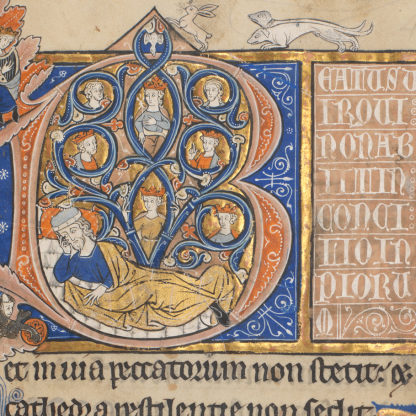 BEATUS U
IR QUI
NON AB
IIT IN
CONCI
LIO IN
PIORU
M
et in uia peccatorum non stetit: &
cathedra pestilentie non sedit: